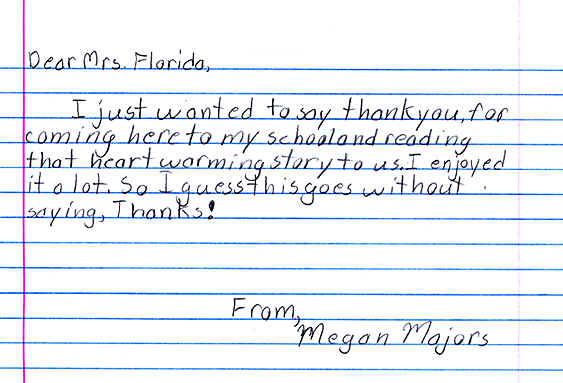 Dear Mrs. Florida,
I just wanted to say thankyou, for
coming here to my school and reading
that heart warming story to us. I enjoyed
it a lot. So I guess this goes without
saying, Thanks!
From,
Megan Majors